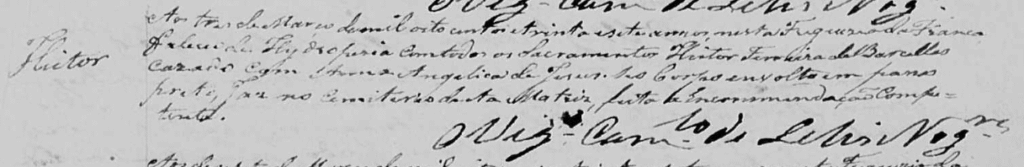 Heitor
Aos tres de Março de mil oito centos e trinta e sete annos, nesta Freguezia da Franca
faleceu de Hydropezia com todos os Sacramentos Heitor Ferreira de Barcellos
cazado com Anna Angelica de Jesus, seo Corpo envolto em pano
preto, jaz no cemiterio desta Matriz, feita a Encommendação Compe-
tente.
O Vigº. Camº. de Lelis Nogrª.